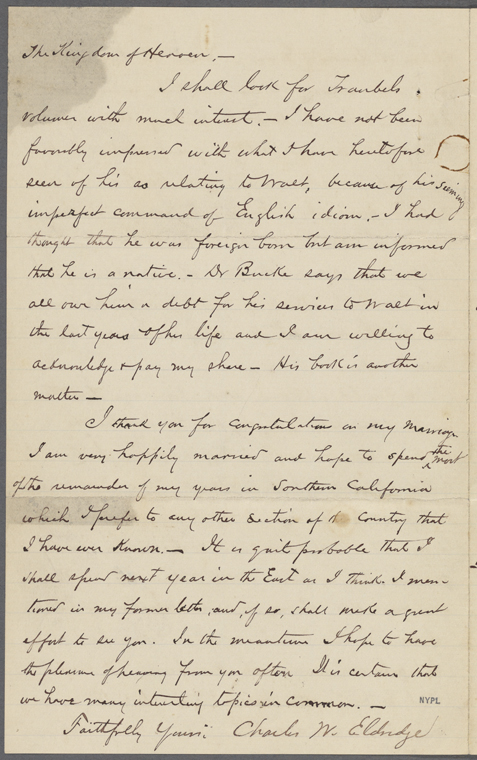 The Kingdom of Heaven. —
I shall look for Traubels
volumes with much interest. — I have not been
favorably impressed with what I have heretofore
seen of his as relating to Walt, because of his seeming
imperfect command of English idiom. — I had
thought that he was foreign born but am informed
that he is a native. — Dr Bucke says that we
all owe him a debt for his services to Walt in
the last years of his life and I am willing to
acknowledge & pay my share — His book is another
matter —
I thank you for congratulations on my marriage
I am very happily married and hope to spend the most
of the remainder of my years in Southern California
which I prefer to any other section of the country that
I have ever known. — It is quite probable that I
shall spend next year in the East as I think I men-
tioned in my former letter, and, if so, shall make a great
effort to see you. In the meantime I hope to have
the pleasure of hearing from you often It is certain that
we have many interesting topics in common. —
NYPL
Faithfully Yours: Charles W. Eldridge